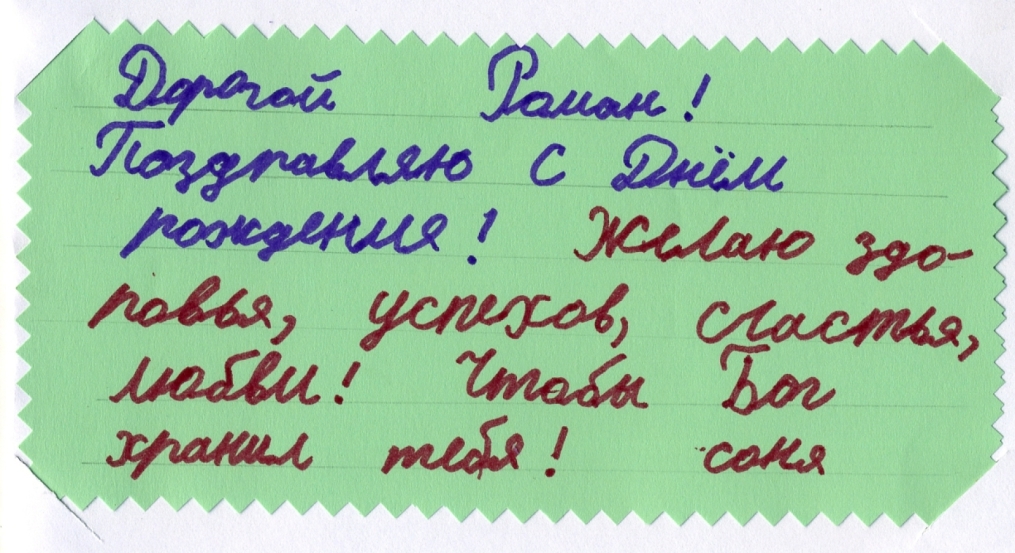 Дорогой Роман!
Поздравляю с Днём
рождения! Желаю здо-
ровья, успехов, счастья,
любви! Чтобы Бог
хранил тебя! соня